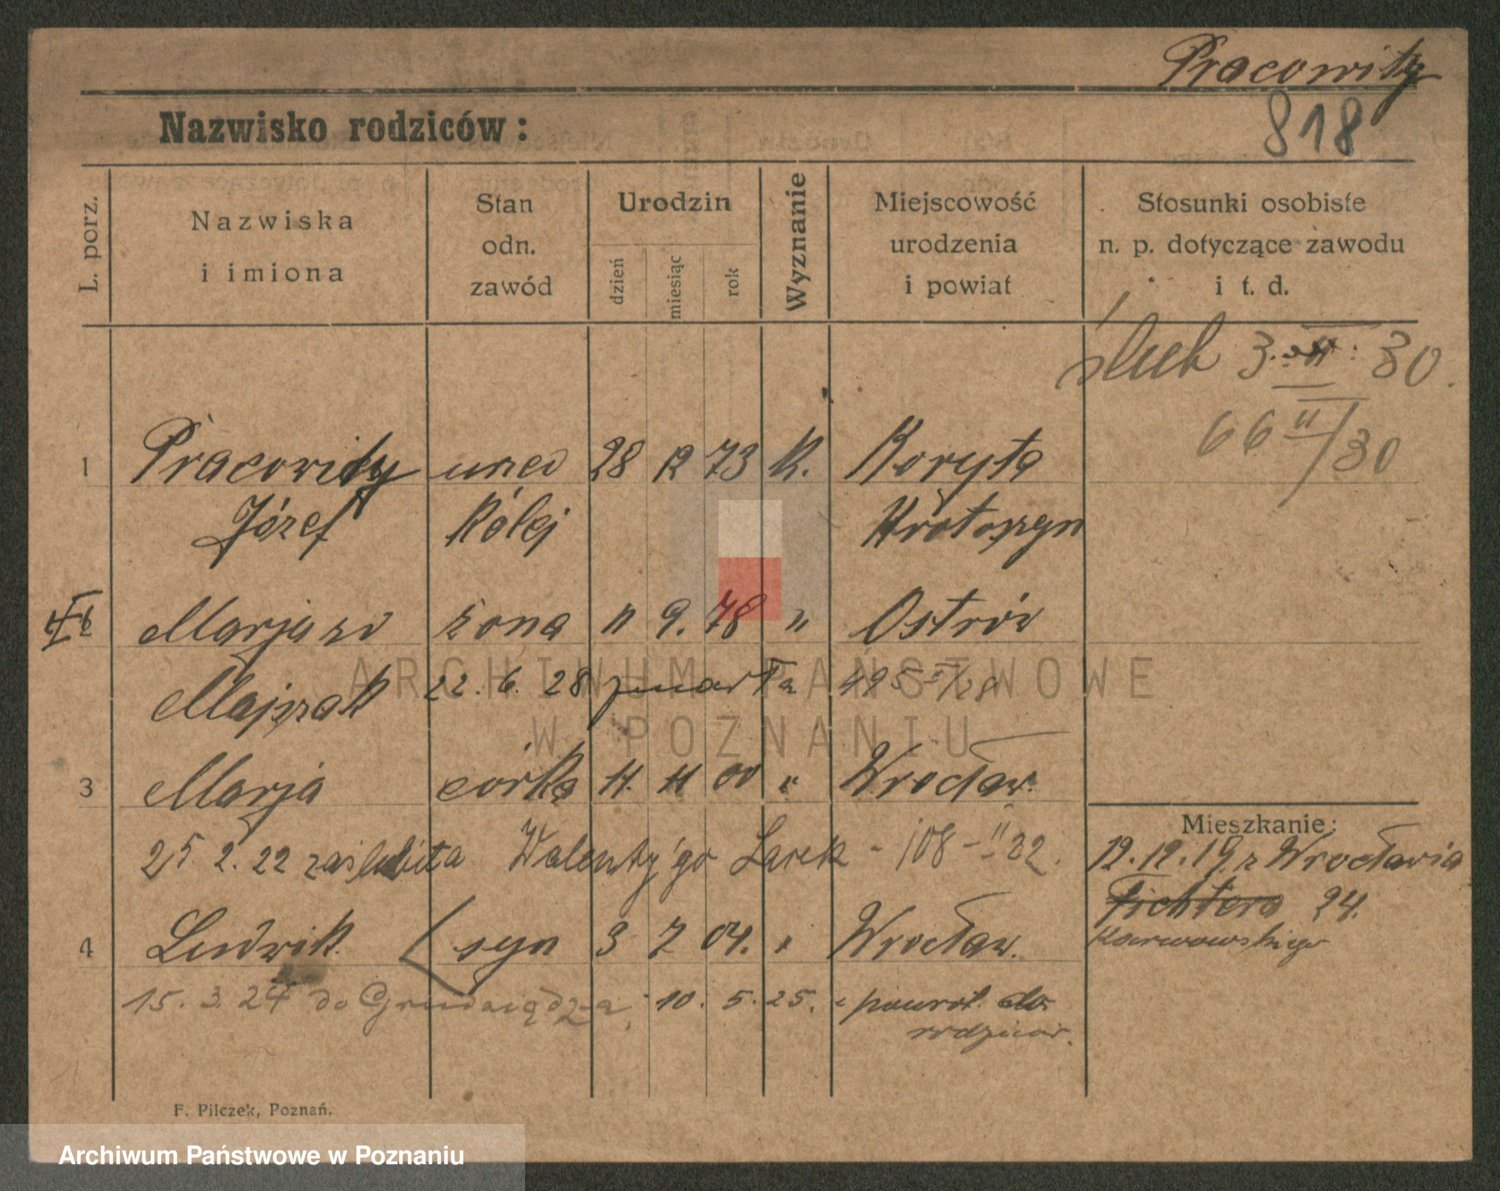 Pracowity
818
Nazwisko rodziców:
L. porz.
Nazwiska
i imiona
Stan
odn.
zawód
Urodzin
dzień
miesiąc
rok
Wyznanie
Miejscowość
urodzenia
i powiat
Stosunki osobiste
n. p. dotyczące zawodu
i t. d.
ślub 3. 30.
66 II/30
1 Pracowity 28 12 73 K. Koryta
Józef Kolej Krotoszyn
Marja zd żona " 9. 78 " Ostrów
Majszak 22. 6. 28 zmarła 495 /28
3 Marja córka 11. 11 00 " Wrocław.
25. 2. 22 zaślubiła Walenty'go - 108 - II 22.
4 Ludwik syn 3 7 04. " Wrocław.
15. 3. 24 do Grudziądza, 10. 5. 25. powrót do
rodziców.
Mieszkanie:
12. 12. 19. z Wrocławia
Fichtera 24.
Karwowskiego
F. Pilczek, Poznań.
ARCHIWUM PAŃSTWOWE
W POZNANIU
Archiwum Państwowe w Poznaniu